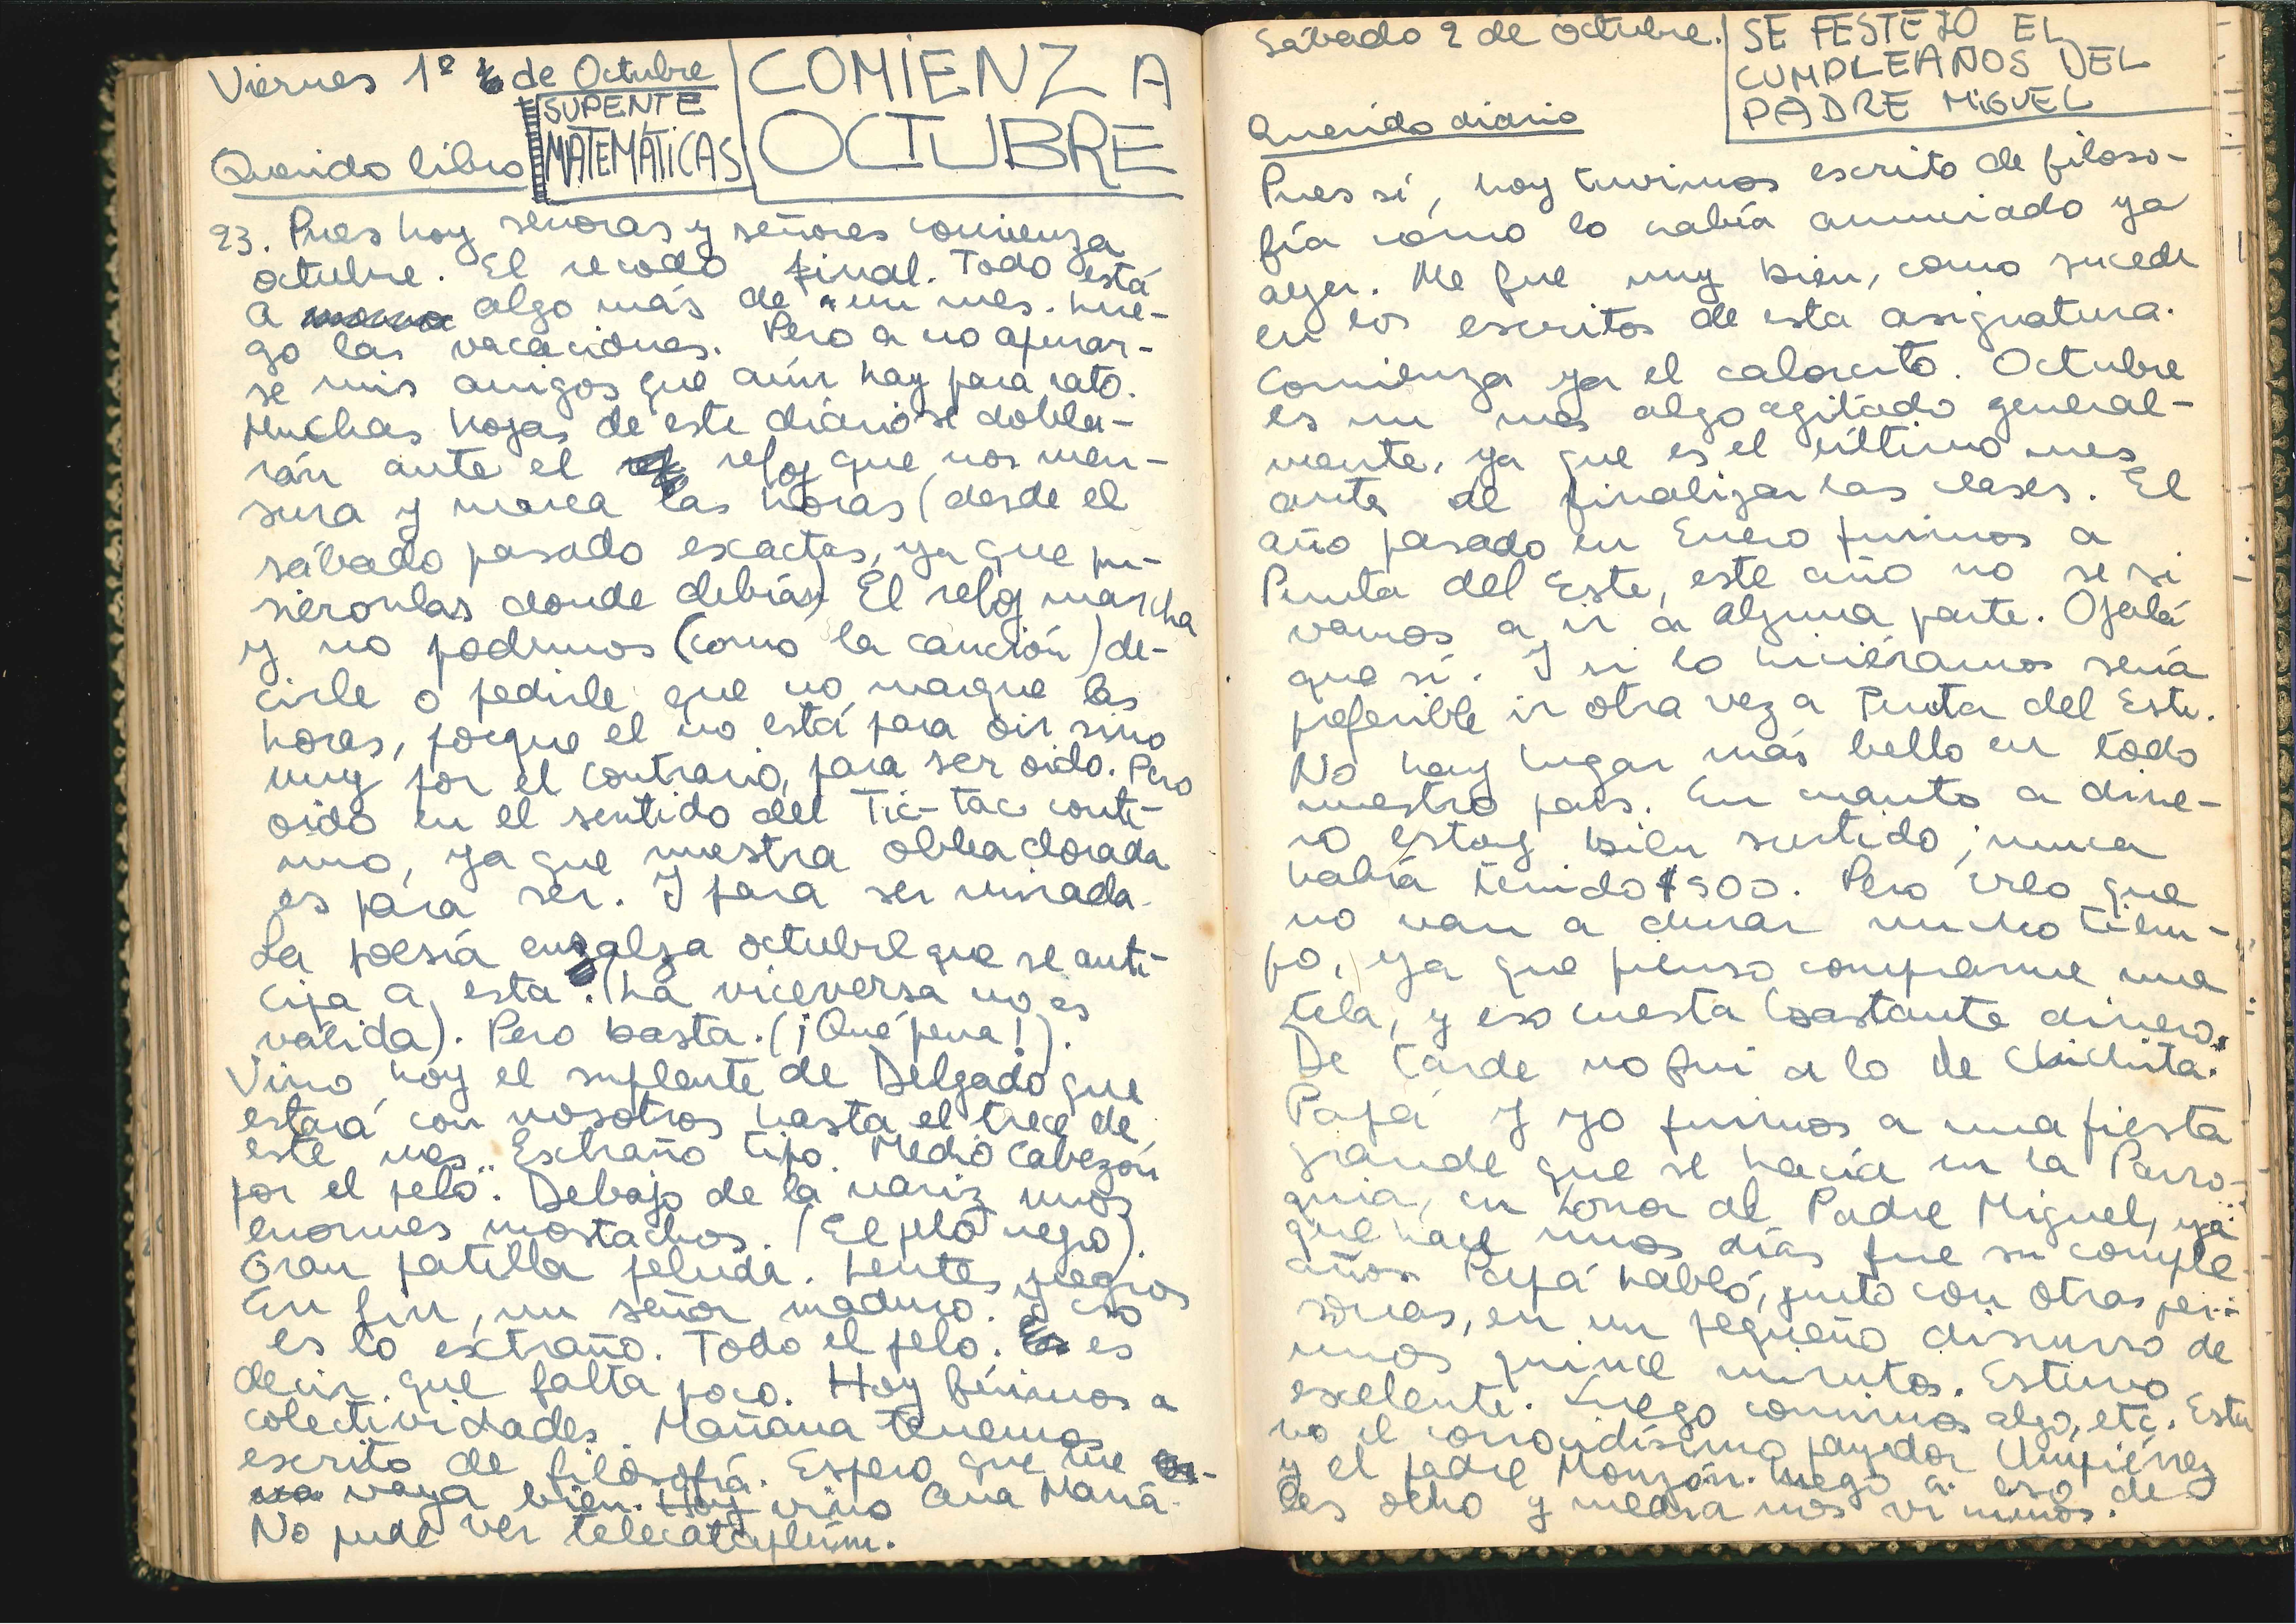 Viernes 1º de Octubre
SUPENTE
MATEMÁTICAS
COMIENZA
OCTUBRE
Querido libro
23. Pues hoy señoras y señores comienza
octubre. El recodo final. Todo está
a algo más de un mes. Lue-
go las vacaciones. Pero a no apurar-
se mis amigos que aún hay para rato.
Muchas hojas de este diario se dobla-
rán ante el reloj que nos men-
sura y marca las horas (desde el
sábado pasado exactas, ya que pu-
sieronlas donde debían) El reloj marcha
y no podemos (como la canción) de-
cirle o pedirle que no marque las
horas, porque el no está para oir sino
muy por el contrario, para ser oido. Pero
oido en el sentido del Tic-tac conti-
nuo, ya que nuestra oblea dorada
es para ser. Y para ser mirada.
La poesía ensalza octubre que se anti-
cipa a esta. (La viceversa no es
válida). Pero basta. (¡Qué pena!).
Vino hoy el suplente de Delgado que
estará con nosotros hasta el trece de
este mes. Extraño tipo. Medio cabezón
por el pelo. Debajo de la nariz unos
enormes mostachos. (El pelo negro).
Gran patilla peluda. Lentes negros
En fin, un señor maduro. Y eso
es lo extraño. Todo el pelo. es
decir que falta poco. Hoy fuimos a
colectividades. Mañana tenemos
escrito de filosofía. Espero que me
vaya bien. Hoy vino Ana María.
No pude ver telecataplúm.
Sábado 2 de Octubre.
SE FESTEJO EL
CUMPLEAÑOS DEL
PADRE MIGUEL
Querido diario
Pues sí, hoy tuvimos escrito de filoso-
fía como lo había anunciado ya
ayer. Me fue muy bien, como sucede
en los escritos de esta asignatura.
Comienza ya el calorcito. Octubre
es un mes algo agitado general-
mente, ya que es el último mes
antes de finalizar las clases. El
año pasado en Enero fuimos a
Punta del Este, este año no se si
vamos a ir a alguna parte. Ojalá
que sí. Y si lo hiciéramos sería
preferible ir otra vez a Punta del Este.
No hay lugar más bello en todo
nuestro país. En cuanto a dine-
ro estoy bien surtido; nunca
había tenido $500. Pero creo que
no van a durar mucho tiem-
po, ya que pienso comprarme una
tela, y eso cuesta bastante dinero.
De tarde no fui a lo de Chichita.
Papá y yo fuimos a una fiesta
grande que se hacía en la Parro-
quia, en honor al Padre Miguel, ya
que hace unos días fue su cumple-
años Papá habló, junto con otras per-
sonas, en un pequeño discurso de
unos quince minutos. Estuvo
exelente. Luego comimos algo, etc. Estu
vo el conocidísimo payador Umpiérrez
y el padre Monzón. Luego a eso de
las ocho y media nos vinimos.